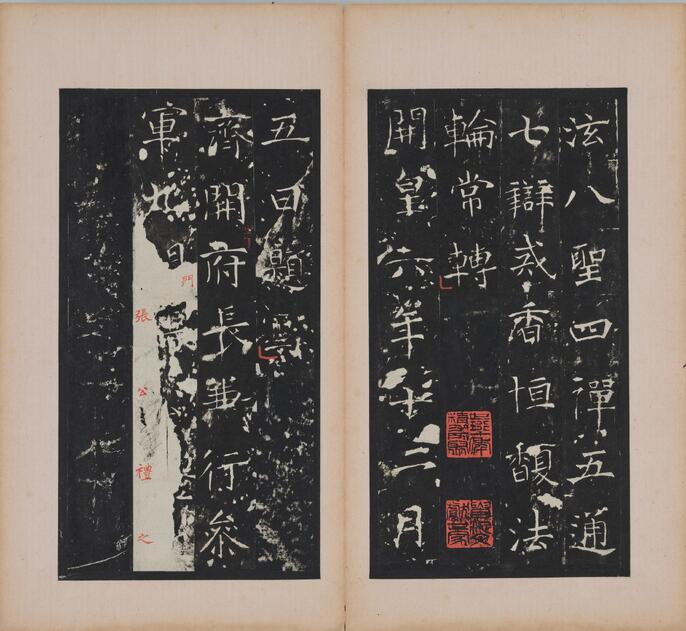 泫八聖四禪五通
七辯戒香恒馥法
輪常轉
開皇六年十二月
五日題寫
齊開府長兼行叅
軍九門張公禮之